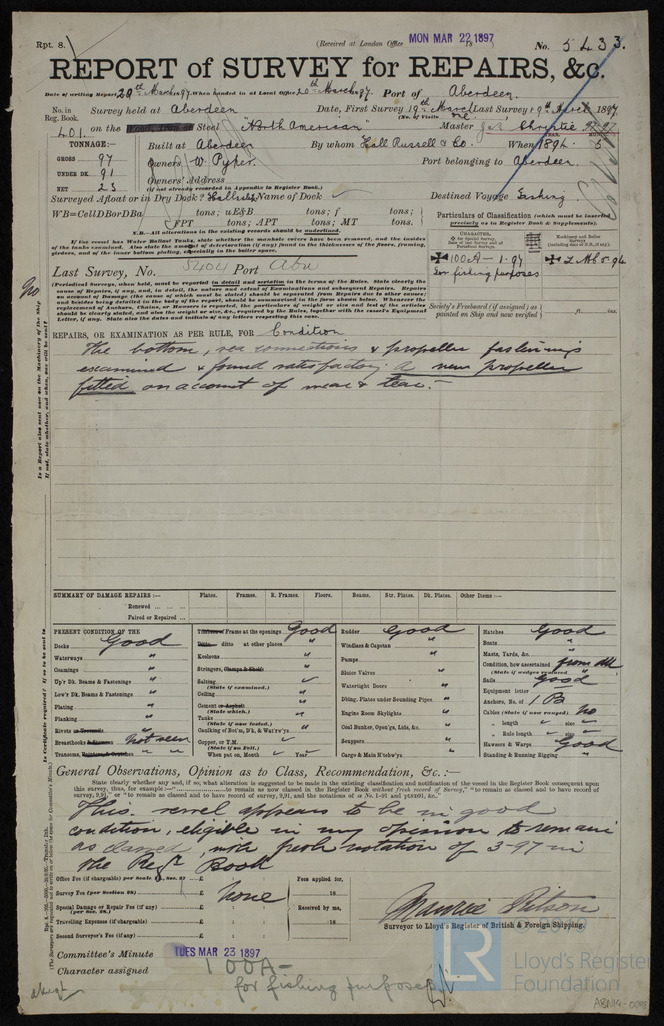 Rpt. 8.
(Received at London Office MON MAR 22 1897 18 )
No. 5433.
REPORT of SURVEY for REPAIRS, &c.
Date of writing Report 20th March 97. When handed in at Local Office 20th March 97. Port of Aberdeen.
No. in Reg. Book. Survey held at Aberdeen Date, First Survey 19th March Last Survey 19th March 1897
(No. of Visits one.)
401. on the Steel "North American" Master J. R. Christie
TONNAGE:— Built at Aberdeen By whom Hall Russell & Co. When 1894. 5
GROSS 97 Owners W. Pyper. Port belonging to Aberdeen.
UNDER DK. 91 Owners' Address
NET 23 (if not already recorded in Appendix to Register Book.)
Surveyed Afloat or in Dry Dock? Name of Dock Destined Voyage Fishing.
WB=CellDBorDBa tons; uE&B tons; f tons;
FPT tons; APT tons; MT tons.
N.B.—All alterations in the existing records should be underlined.
If the vessel has Water Ballast Tanks, state whether the manhole covers have been removed, and the insides
of the tanks examined. Also state the amount of deterioration (if any) found in the thicknesses of the floors, framing,
girders, and of the inner bottom plating, especially in the boiler space.
Particulars of Classification (which must be inserted
precisely as in Register Book & Supplements).
CHARACTER.
Machinery and Boiler Surveys
100A— 1.97
For fishing purposes
Last Survey, No. 5404 Port Abn
Society's Freeboard (if assigned) as painted on Ship and now verified ft. ins.
(Periodical Surveys, when held, must be reported in detail and seriatim in the terms of the Rules. State clearly the
cause of Repairs, if any, and, in detail, the nature and extent of Examinations and subsequent Repairs. Repairs
on account of Damage (the cause of which must be stated) should be separated from Repairs due to other causes;
and besides being detailed in the body of the report, should be summarised in the form shown below. Whenever the
replacement of Anchors, Chains, or Hawsers is reported, the particulars of weight or size and test of the articles
should be clearly stated, and also the weight or size, &c., required by the Rules, together with the vessel's Equipment
Letter, if any. State also the dates and initials of any letters respecting this case.)
REPAIRS, OR EXAMINATION AS PER RULE, FOR Condition
The bottom, sea connections & propeller fastenings
examined & found satisfactory. A new propeller
fitted on account of wear & tear.—
SUMMARY OF DAMAGE REPAIRS:— Plates. Frames. R. Frames. Floors. Beams. Str. Plates. Dk. Plates. Other Items:—
Renewed ... ... ...
Faired or Repaired ...
PRESENT CONDITION OF THE
Decks Good
Waterways "
Coamings "
Up'r Dk. Beams & Fastenings "
Low'r Dk. Beams & Fastenings "
Plating "
Planking "
Rivets or Treenails "
Breasthooks & Stemson not seen
Transoms, Pointers, & Crutches " "
Timbers or Frame at the openings Good
Ditto ditto at other places "
Keelsons "
Stringers, Clamps & Shelfs "
Salting
(State if examined.)
Ceiling "
Cement or Asphalt "
(State which.)
Tanks
(State if now tested.)
Caulking of Bot'm, D'k, & Wat'rw'ys "
Copper, or Y.M.
(State if on Felt.)
When put on, Month Year
Rudder Good
Windlass & Capstan "
Pumps "
Sluice Valves
Watertight Doors
Dblng. Plates under Sounding Pipes "
Engine Room Skylights "
Coal Bunker, Open'gs, Lids, &c. "
Scuppers "
Cargo & Main H'tchw'ys "
Hatches Good
Boats "
Masts, Yards, &c. "
Condition, how ascertained from dk
(State if wedges removed.)
Sails Good
Equipment letter
Anchors, No. of 1 B
Cables (State if now ranged) No
" length size
" Rule length size
Hawsers & Warps Good
Standing & Running Rigging "
General Observations, Opinion as to Class, Recommendation, &c. :—
State clearly whether any and, if so, what alteration is suggested to be made in the existing classification and notification of the vessel in the Register Book consequent upon
this survey, thus, for example :—" to remain as now classed in the Register Book without fresh record of Survey," "to remain as classed and to have record of
survey, 9,91," or "to remain as classed and to have record of survey, 9,91, and the notations of
This vessel appears to be in good
condition, eligible in my opinion to remain
as classed, with fresh notation of 3-97 in
the Regr Book
Office Fee (if chargeable) per Scale £
Survey Fee (per Section 28) £ None
Special Damage or Repair Fee (if any) £
(per Sec. 28.)
Travelling Expenses (if chargeable) £
Second Surveyor's Fee (if any) £
Fees applied for, 18
Received by me, 18
Surveyor to Lloyd's Register of British & Foreign Shipping.
Committee's Minute TUES MAR 23 1897
Character assigned 100A—
for fishing purposes
LR
Lloyd's Register
Foundation